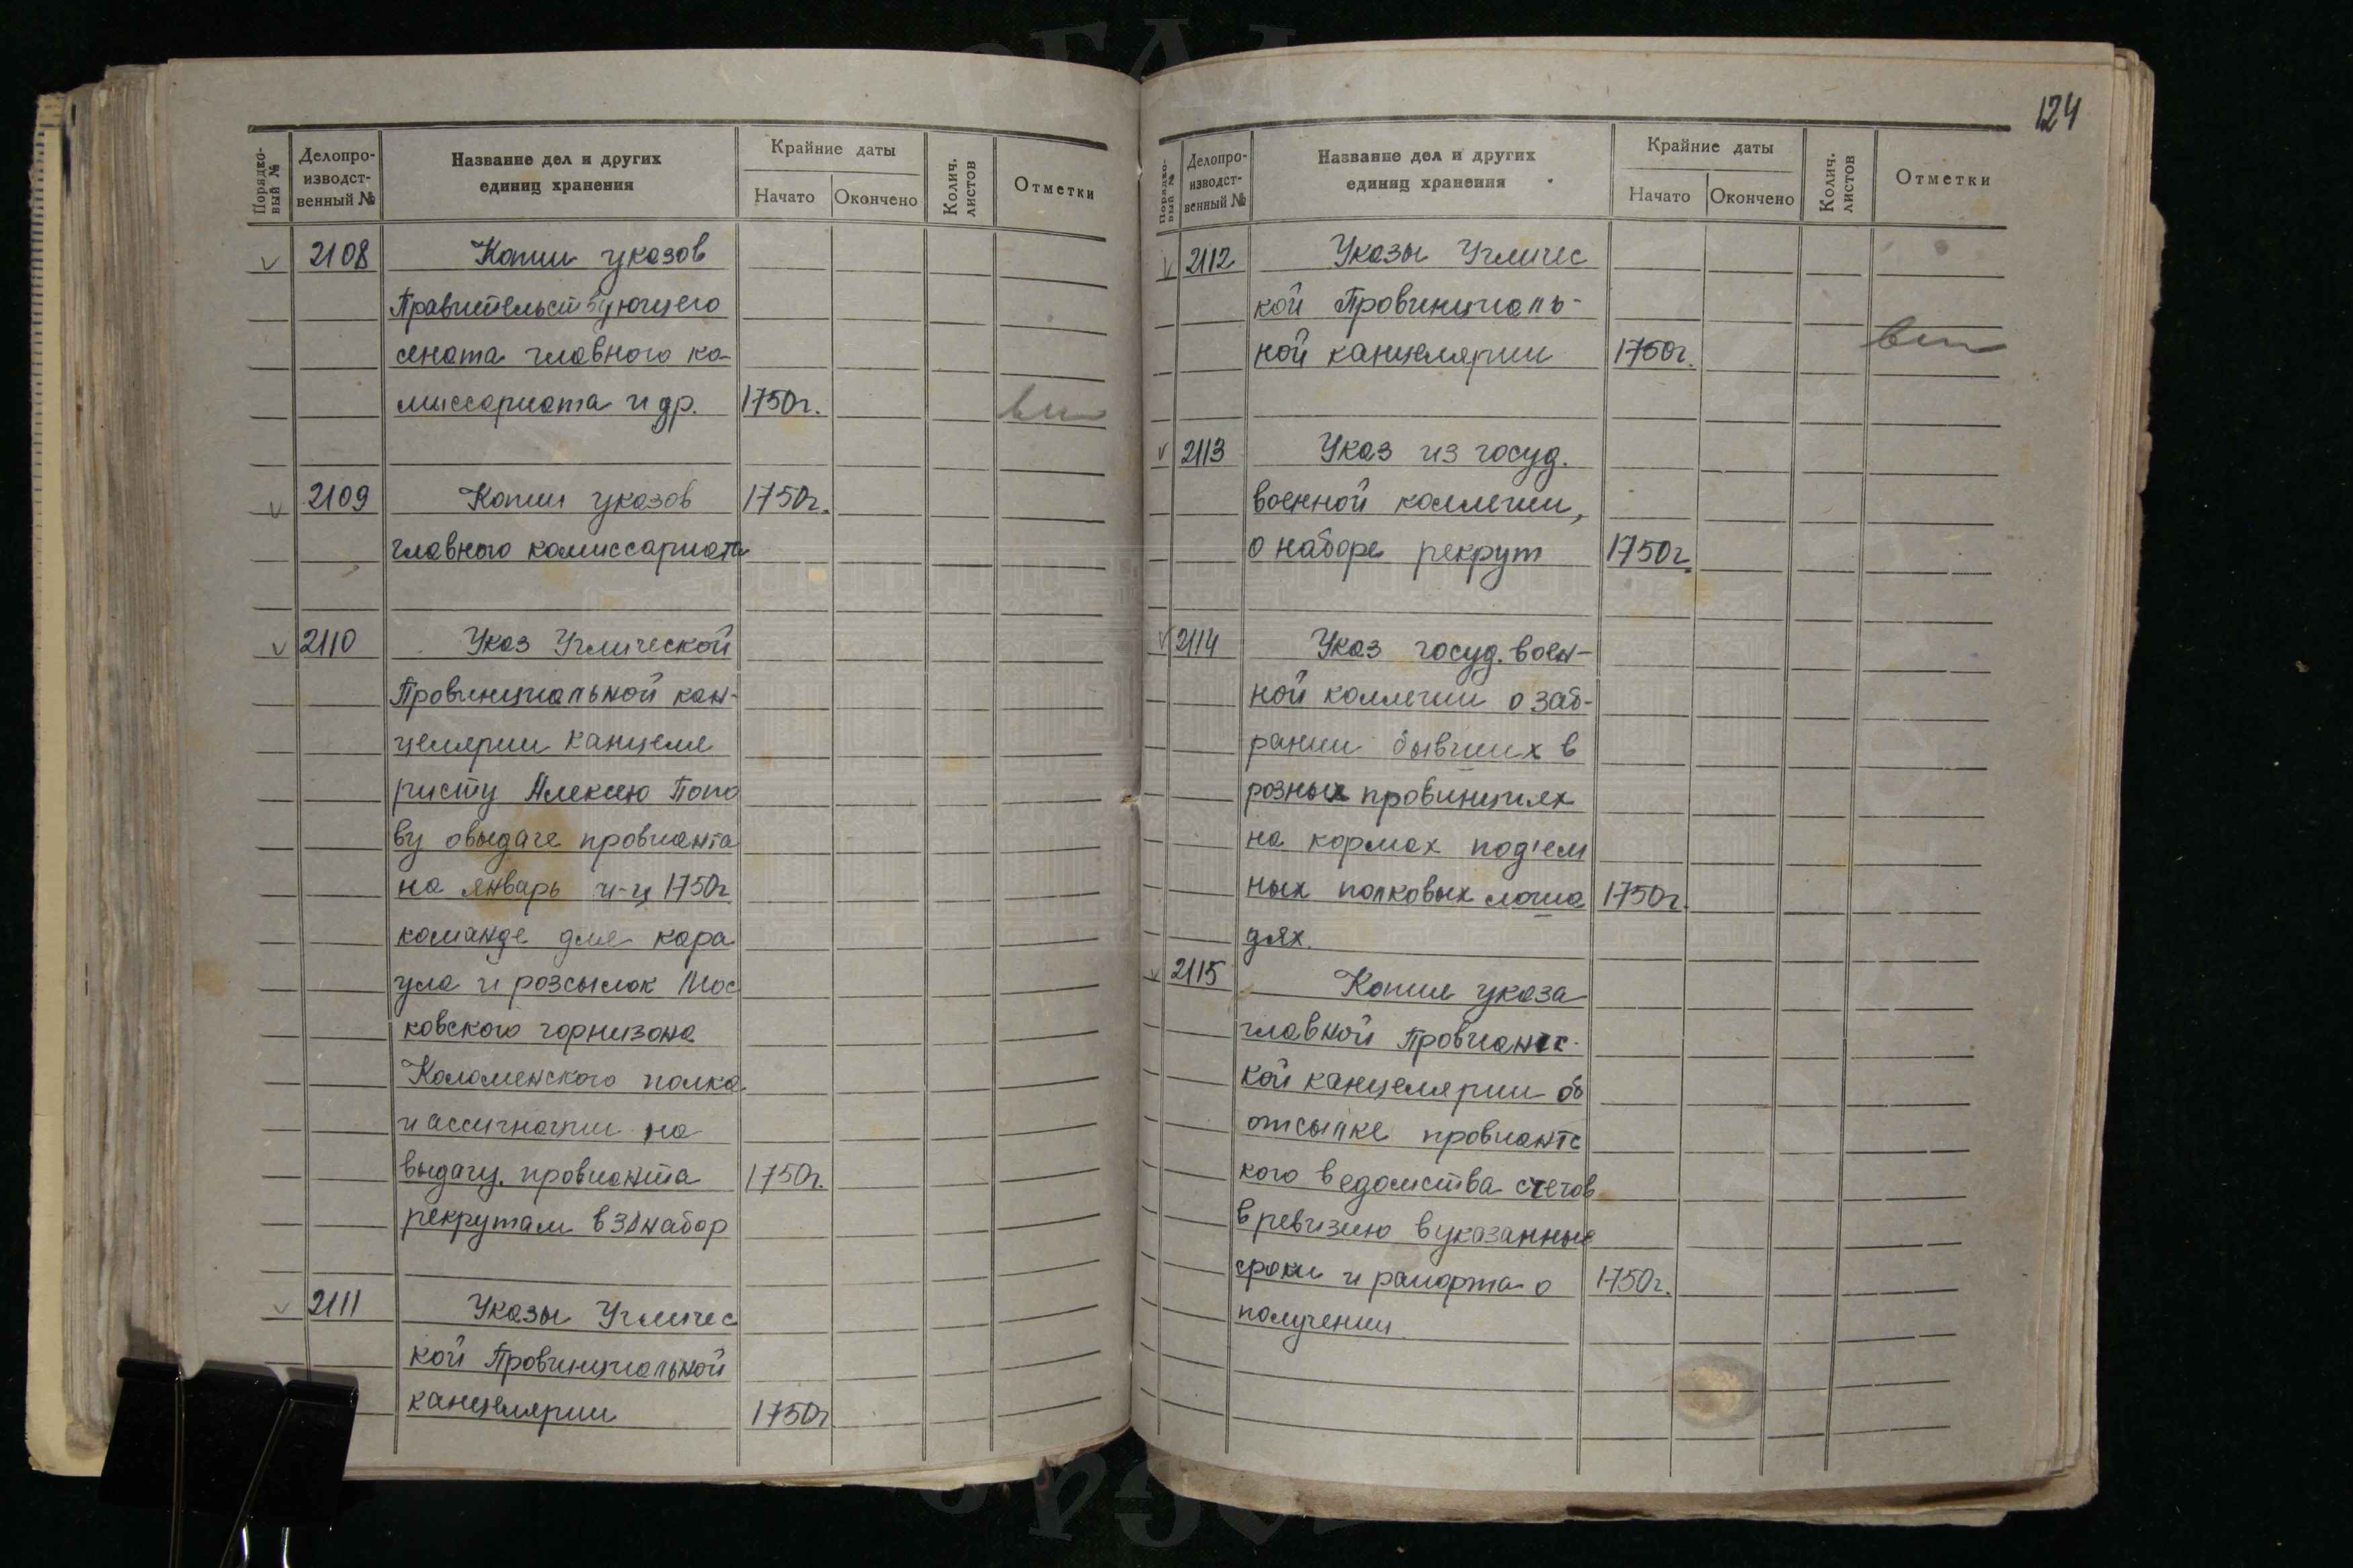 Порядко-
вый №
Делопро-
изводст-
венный №
Название дел и других
единиц хранения
Крайние даты
Начато
Окончено
Колич.
листов
Отметки
v 2108 Копии указов
Правительствующего
сената главного ко
миссариата и др. 1750г.
v 2109 Копии указов 1750г.
главного комиссариата
v 2110 Указ Угличской
Провинциальной кан-
целярии канцеля
ристу Алексею Попо
ву овыдаче провианта
на январь м-ц 1750г
команде для кара
ула и розсылок Мос
ковского горнизона
Коломенского полка
и ассигнации на
выдачу провианта 1750г.
рекрутам в набор
v 2111 Указы Угличес
кой Провинциальной
канцелярии 1750г
124
Порядко-
вый №
Делопро-
изводст-
венный №
Название дел и других
единиц хранения
Крайние даты
Начато
Окончено
Колич.
листов
Отметки
v 2112 Указы Угличес
кой Провинциаль-
ной канцелярии 1750г.
v 2113 Указ из госуд.
военной коллегии,
о наборе рекрут 1750г.
v 2114 Указ госуд. воен-
ной коллегии о заб-
рании бывших в
розных провинциях
на кормах под'ем
ных полковых лоша 1750г.
дях.
v 2115 Копия указа
главной Провиантс-
кой канцелярии об
отсылке провиантс
кого ведомства счетов
в ревизию вуказанные
сроки и рапорта о 1750г.
получении